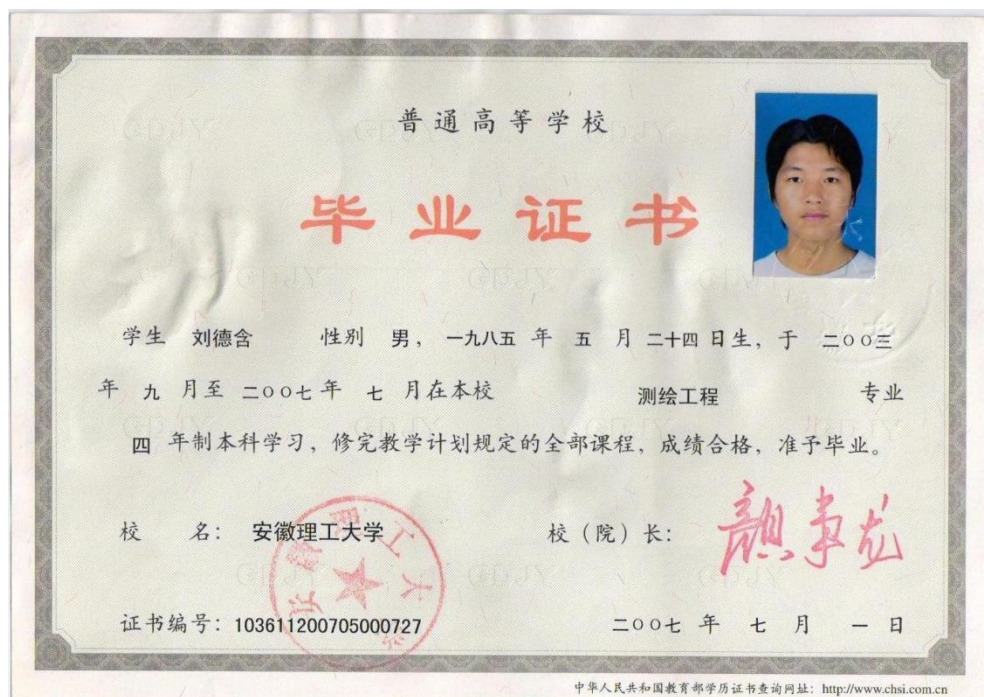 普通高等学校
毕业证书
学生 刘德含 性别 男，一九八五 年 五 月 二十四日生，于 二〇〇三
年 九 月至 二〇〇七年 七 月在本校 测绘工程 专业
四 年制本科学习，修完教学计划规定的全部课程，成绩合格，准予毕业。
校 名： 安徽理工大学 校（院）长：
证书编号：103611200705000727 二〇〇七 年 七 月 一 日
中华人民共和国教育部学历证书查询网址：http://www.chsi.com.cn